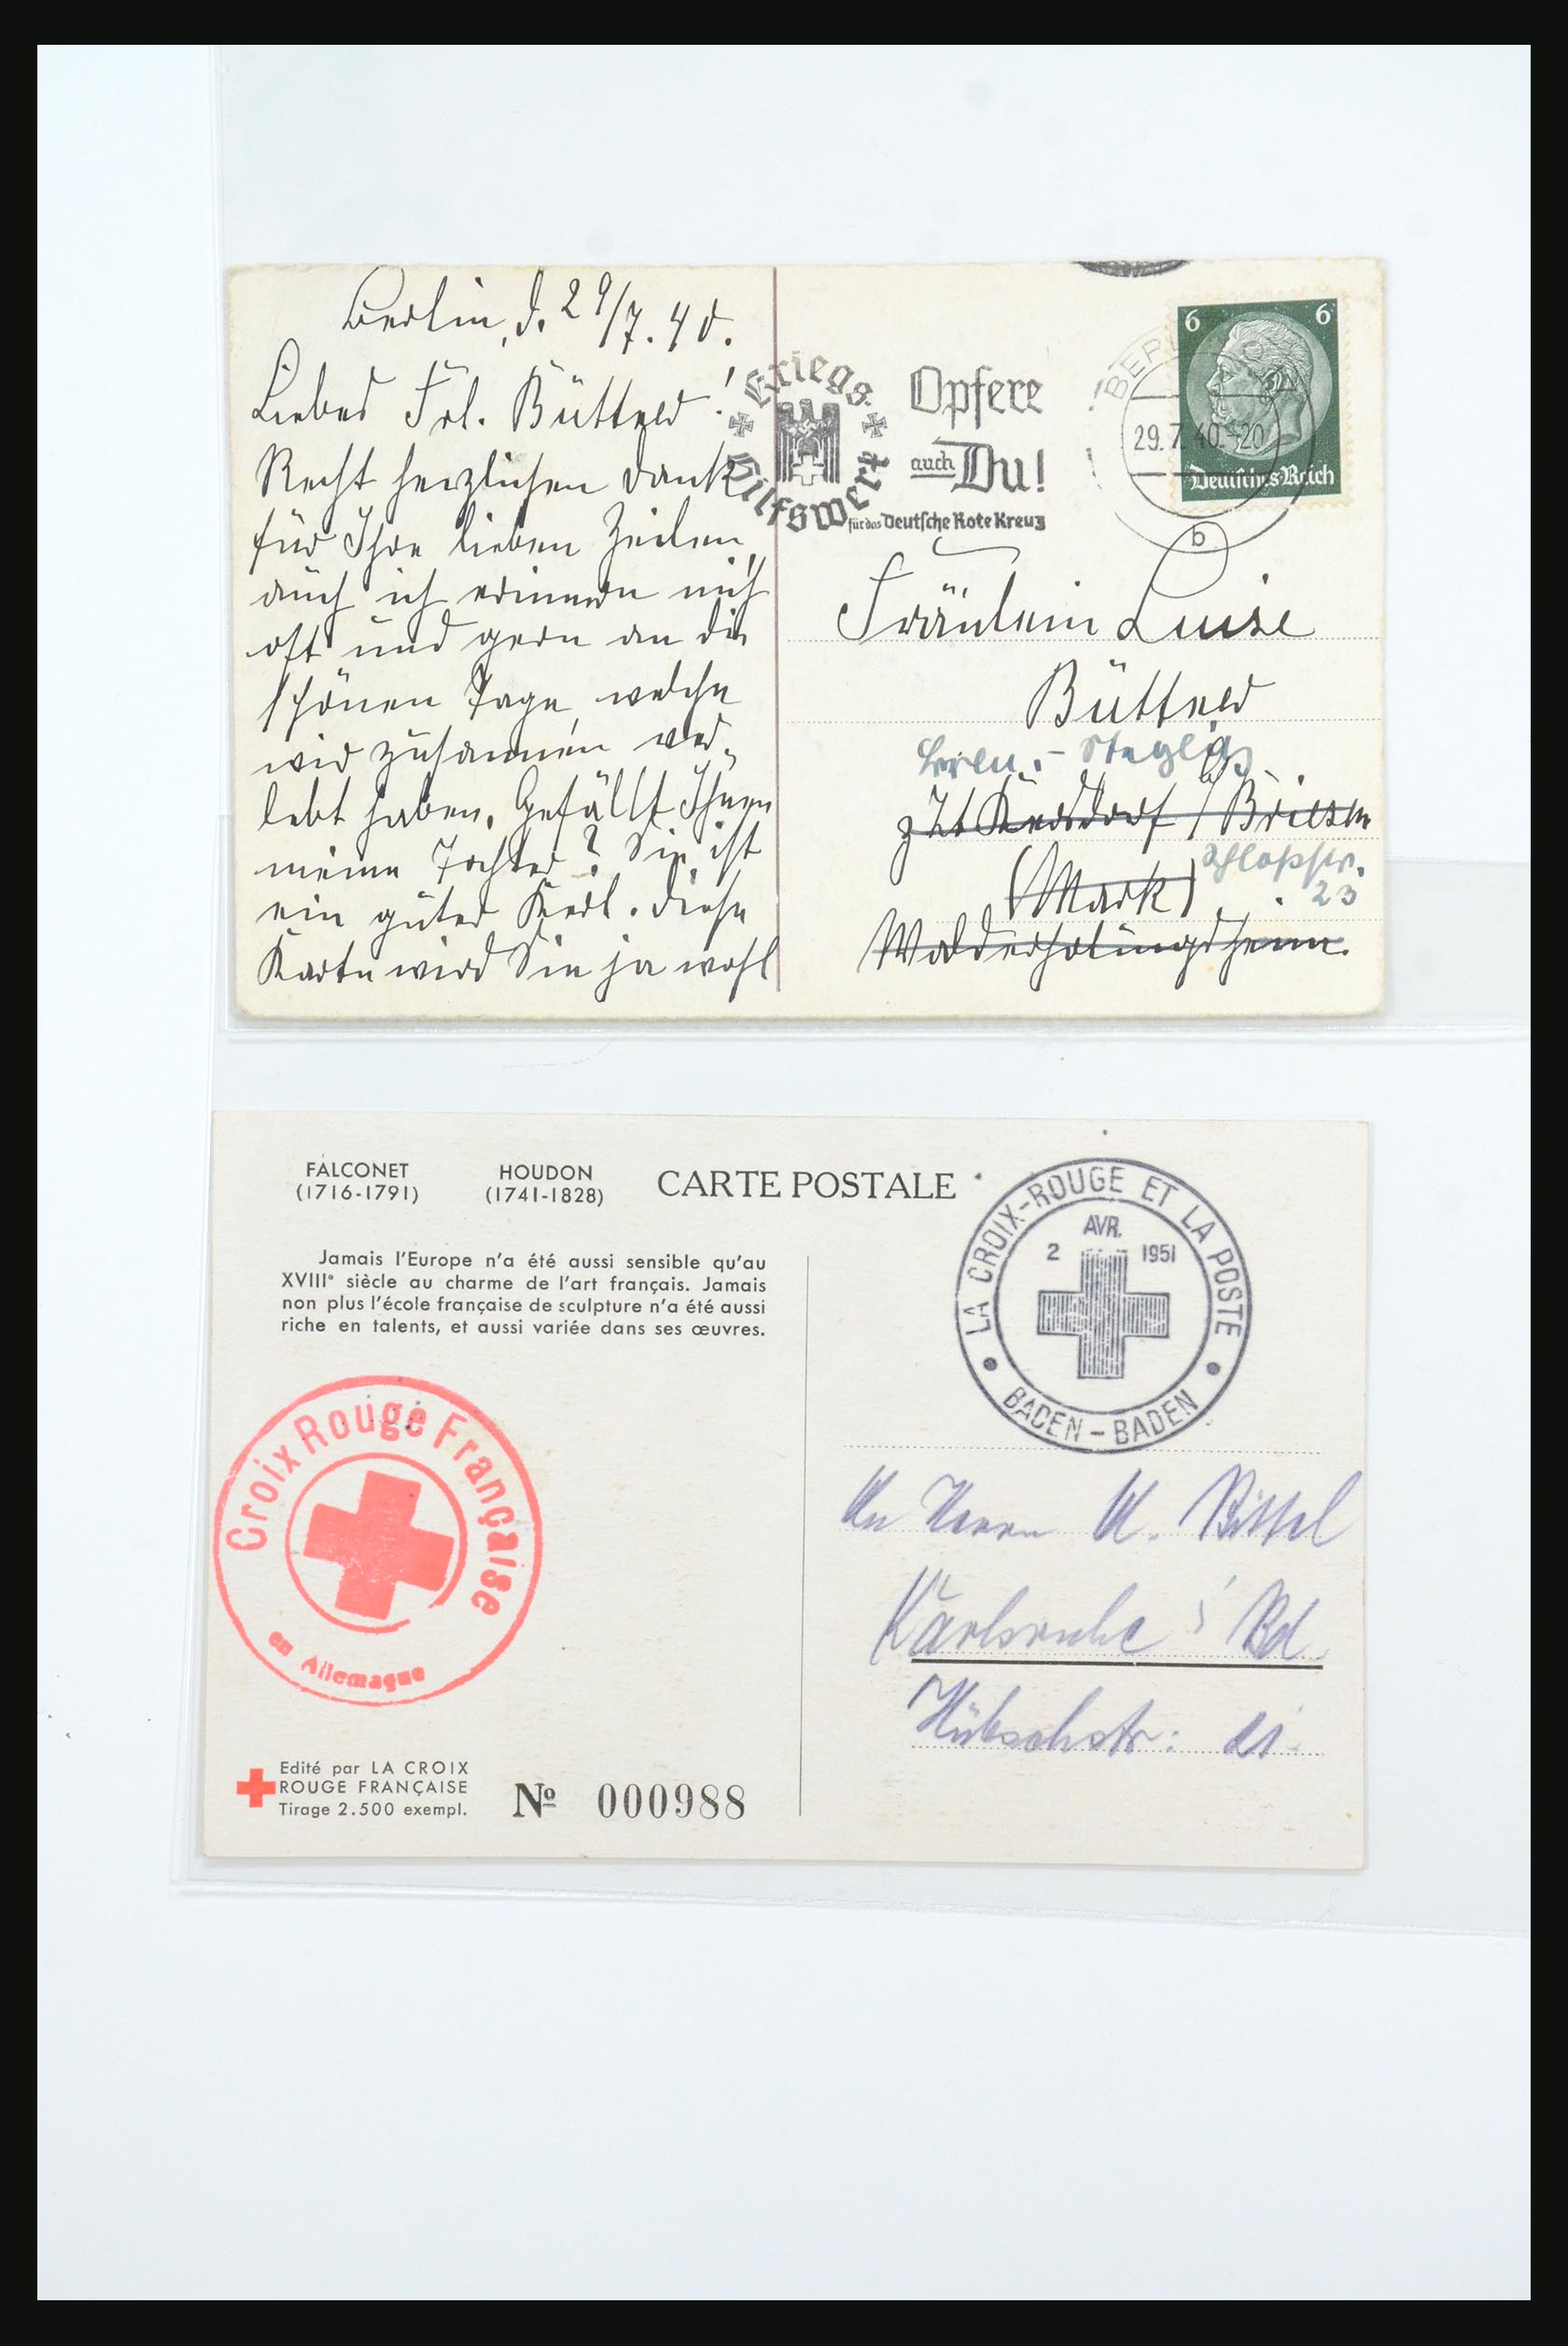 Berlin, d. 29/7.40.
Liebes Frl. Büttner!
Recht herzlichen Dank
für Ihre lieben Zeilen,
auch ich erinnere mich
oft und gern an die
schönen Tage, welche
wir zusammen ver-
lebt haben. Gefällt Ihnen
meine Tochter? Sie ist
ein guter Kerl. Diese
Karte wird Sie ja wohl
Kriegs
Hilfswerk
Opfere
auch Du!
für das Deutsche Rote Kreuz
BERL
29.7.40.-20
b
6 6
Deutsches Reich
Fräulein Luise
Büttner
Berlin - Steglitz
z Zt Kersdorf / Briesen
(Mark) Schloßstr.
23
Walderholungsheim.
FALCONET HOUDON CARTE POSTALE
(1716-1791) (1741-1828)
Jamais l'Europe n'a été aussi sensible qu'au
XVIIIe siècle au charme de l'art français. Jamais
non plus l'école française de sculpture n'a été aussi
riche en talents, et aussi variée dans ses œuvres.
LA CROIX-ROUGE ET LA POSTE
2 AVR. 1951
BADEN-BADEN
Croix Rouge Française
en Allemagne
An Herrn K. Bittel
Karlsruhe i Bd.
Hübschstr: 21.
Edité par LA CROIX
ROUGE FRANÇAISE
Tirage 2.500 exempl.
Nº 000988